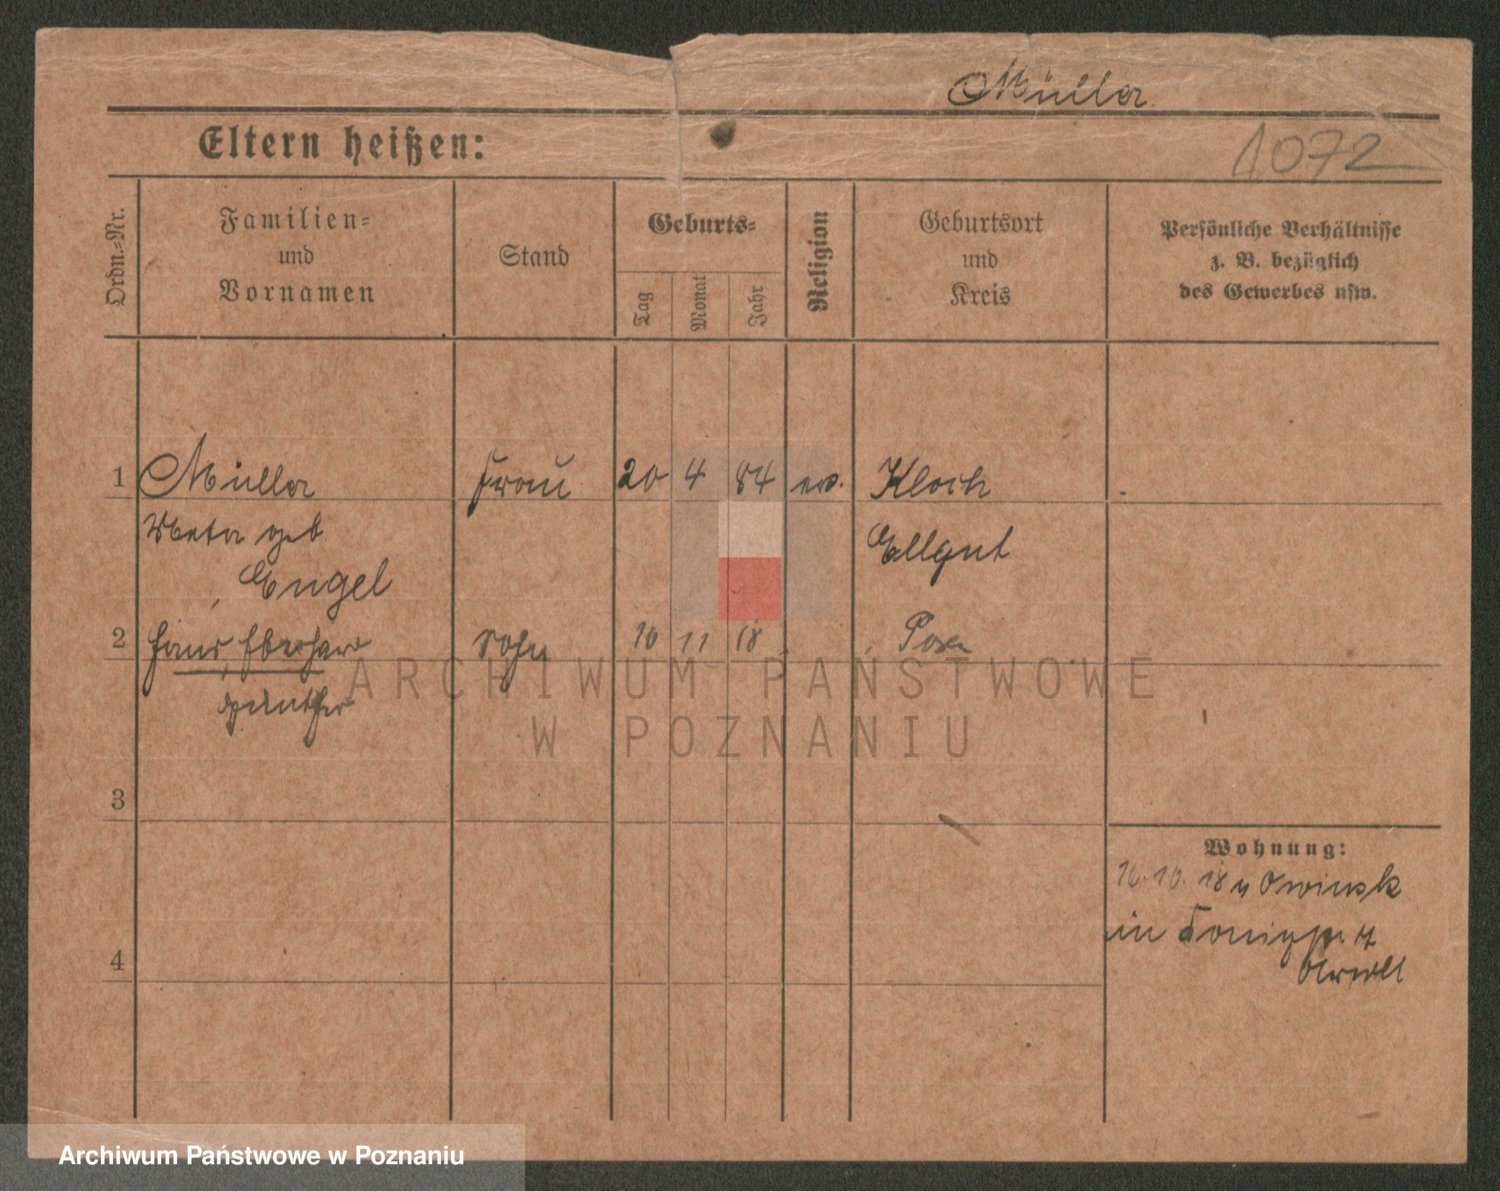 Müller
Eltern heißen:
1072
Ordn.-Nr.
Familien-
und
Vornamen
Stand
Geburts-
Tag
Monat
Jahr
Religion
Geburtsort
und
Kreis
Persönliche Verhältnisse
z. B. bezüglich
des Gewerbes usw.
1 Müller Frau 20 4 84 ev. Kloch
Meta geb Ellgut
Engel
2 Hans, Eberhard Sohn 10 11 18 Posen
Günther
ARCHIWUM PAŃSTWOWE
W POZNANIU
3
Wohnung:
10. 18 v Owinsk
in
4
Archiwum Państwowe w Poznaniu